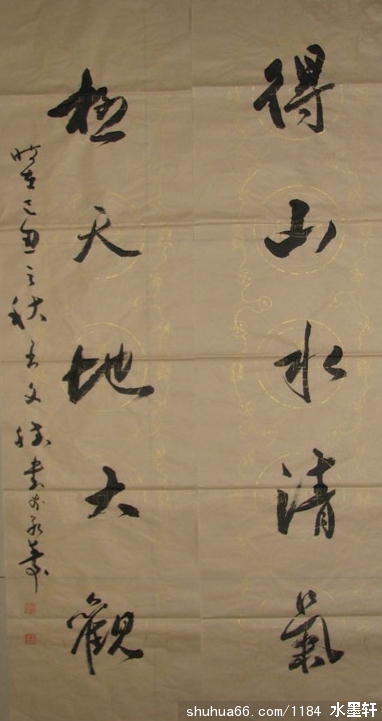 得山水清氣
極天地大觀
時在己丑之秋王文
書於
shuhua66.com/1184 水墨轩